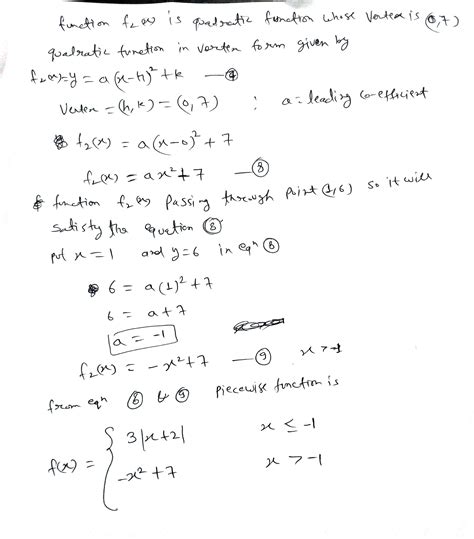 function f₂(x) is quadratic function whose vertex is (0,7)
quadratic function in vertex form given by
f₂(x)=y = a(x-h)²+k —④
Vertex = (h,k) = (0,7) ; a= leading co-efficient
f₂(x) = a(x-0)² + 7
f₂(x) = ax²+7 —⑧
function f₂(x) Passing through point (1,6) so it will
satisfy the equation ⑧
put x=1 and y=6 in eqⁿ ⑧
6 = a(1)²+7
6 = a+7
a = -1
f₂(x) = -x²+7 —⑨ x>-1
from eqⁿ ⑥ & ⑨ Piecewise function is
f(x) = { 3|x+2| x ≤ -1
-x²+7 x > -1